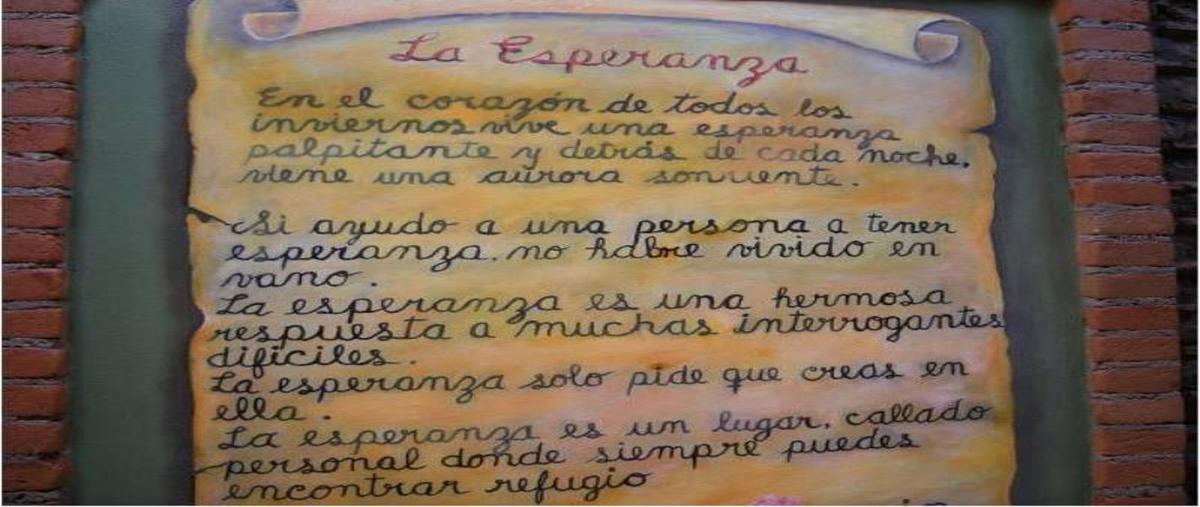 La Esperanza
En el corazón de todos los
inviernos vive una esperanza
palpitante y detrás de cada noche,
viene una aurora sonriente.
Si ayudo a una persona a tener
esperanza, no habre vivido en
vano.
La esperanza es una hermosa
respuesta a muchas interrogantes
dificiles.
La esperanza solo pide que creas en
ella.
La esperanza es un lugar, callado
personal donde siempre puedes
encontrar refugio